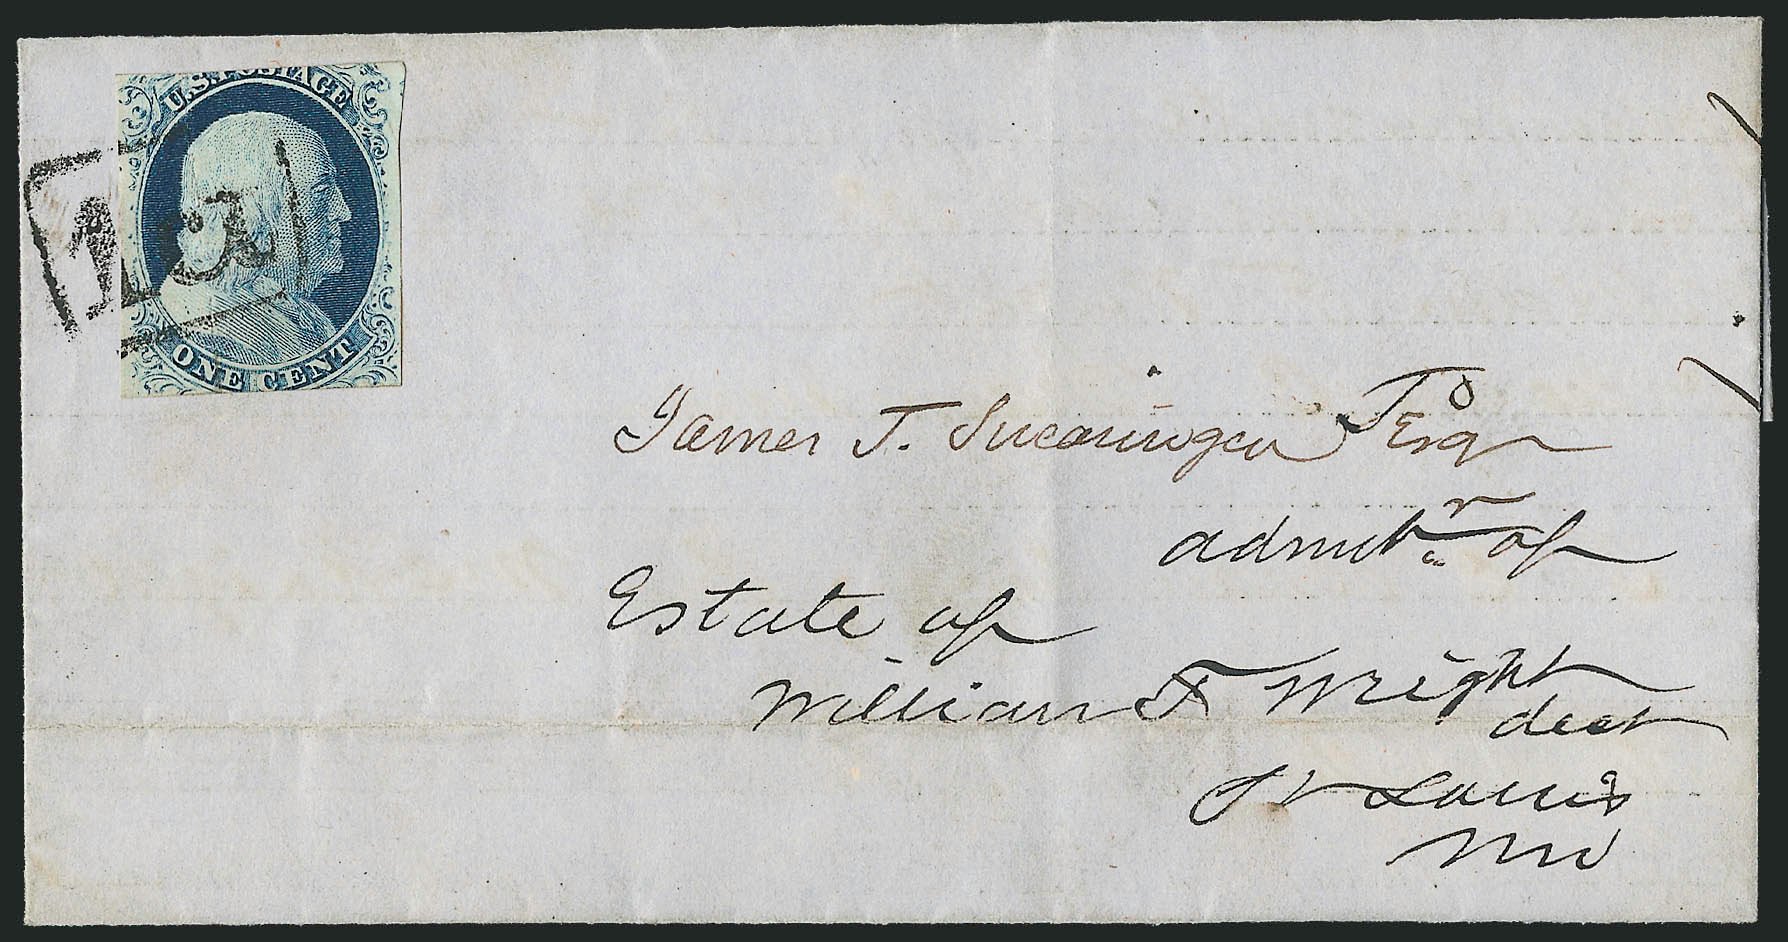 U.S. POSTAGE
1 ct
ONE CENT
James T. Swearingen Esqr
admtr of
Estate of
William F Wright
decd
St Louis
Mo